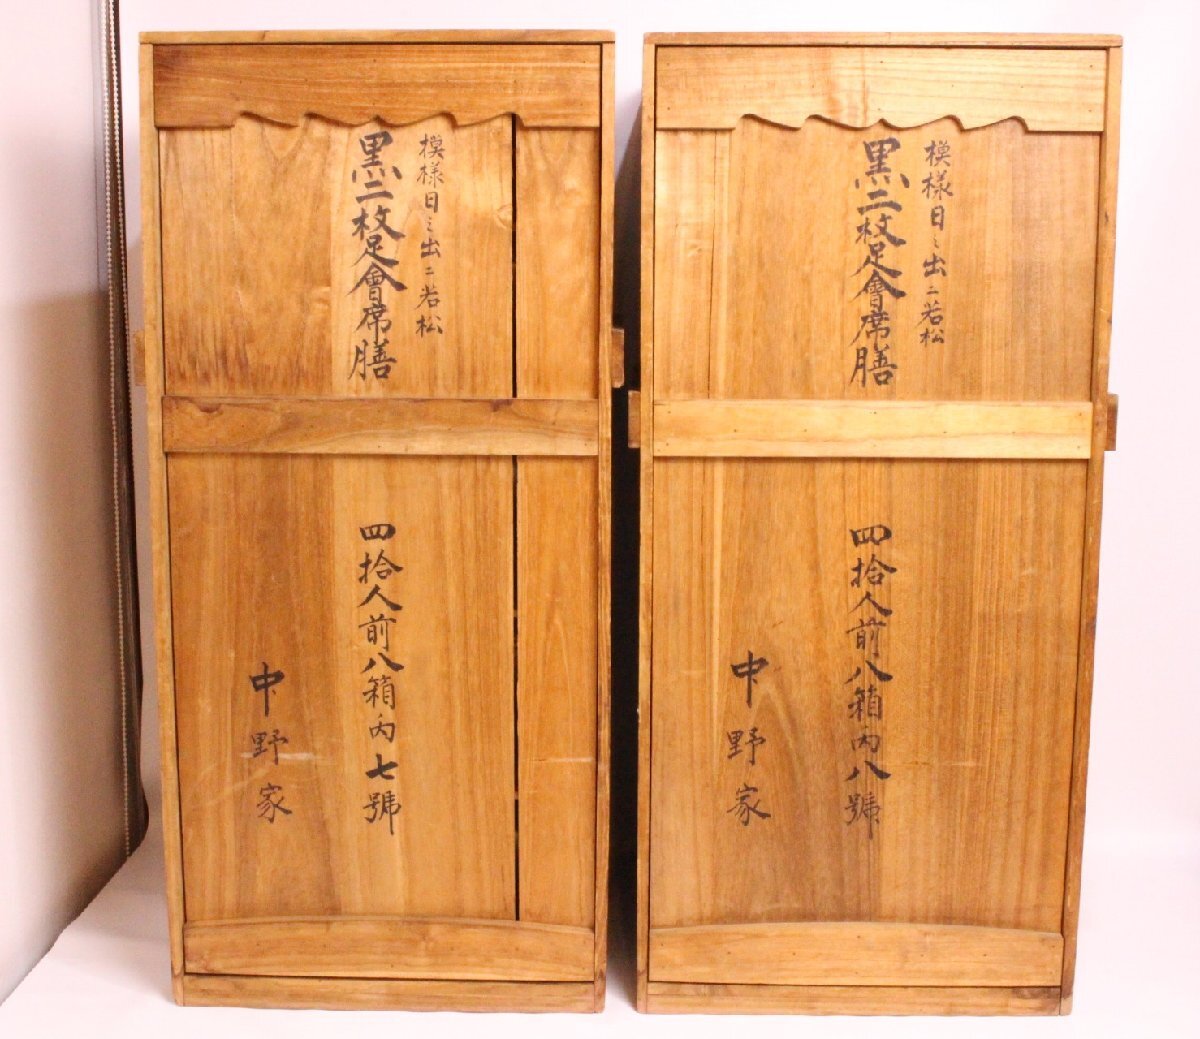 模様日ミ出ニ若松
黒二枚足會席膳
四拾人前八箱内七號
中野家
模様日ミ出ニ若松
黒二枚足會席膳
四拾人前八箱内八號
中野家